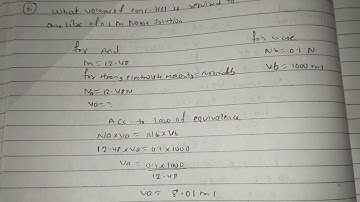 What volume of conc. HCl is required to
one litre of 0.1 m NaOH solution
for Acid
m = 12.48
for strong electrolyte molarity = normality
Na = 12.48N
Va = ?
for base
Nb = 0.1 N.
Vb = 1000 ml
Acc. to law of equivalence
Na x Va = Nb x Vb
12.48 x Va = 0.1 x 1000
Va = 0.1 x 1000
12.48
Va = 8.01 ml